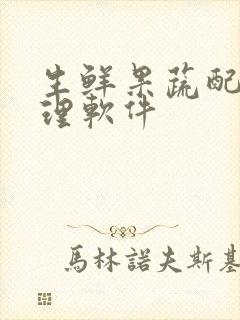 生鲜果蔬配
理軟件
馬林諾夫斯基